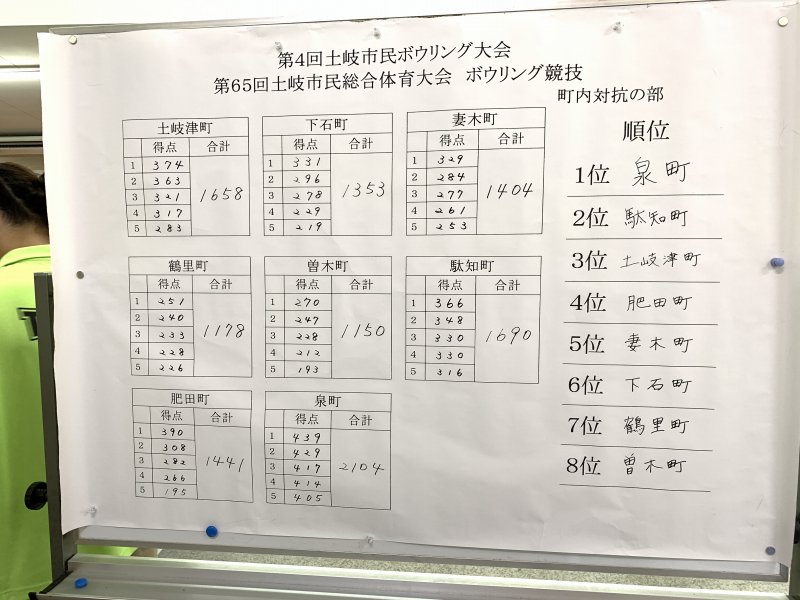 第4回土岐市民ボウリング大会
第65回土岐市民総合体育大会 ボウリング競技
町内対抗の部
土岐津町
得点 合計
1 374
2 363
3 321
4 317
5 283
1658
下石町
得点 合計
1 331
2 296
3 278
4 229
5 219
1353
妻木町
得点 合計
1 329
2 284
3 277
4 261
5 253
1404
鶴里町
得点 合計
1 251
2 240
3 233
4 228
5 226
1178
曽木町
得点 合計
1 270
2 247
3 228
4 212
5 193
1150
駄知町
得点 合計
1 366
2 348
3 330
4 330
5 316
1690
肥田町
得点 合計
1 390
2 308
3 282
4 266
5 195
1441
泉町
得点 合計
1 439
2 429
3 417
4 414
5 405
2104
順位
1位 泉町
2位 駄知町
3位 土岐津町
4位 肥田町
5位 妻木町
6位 下石町
7位 鶴里町
8位 曽木町